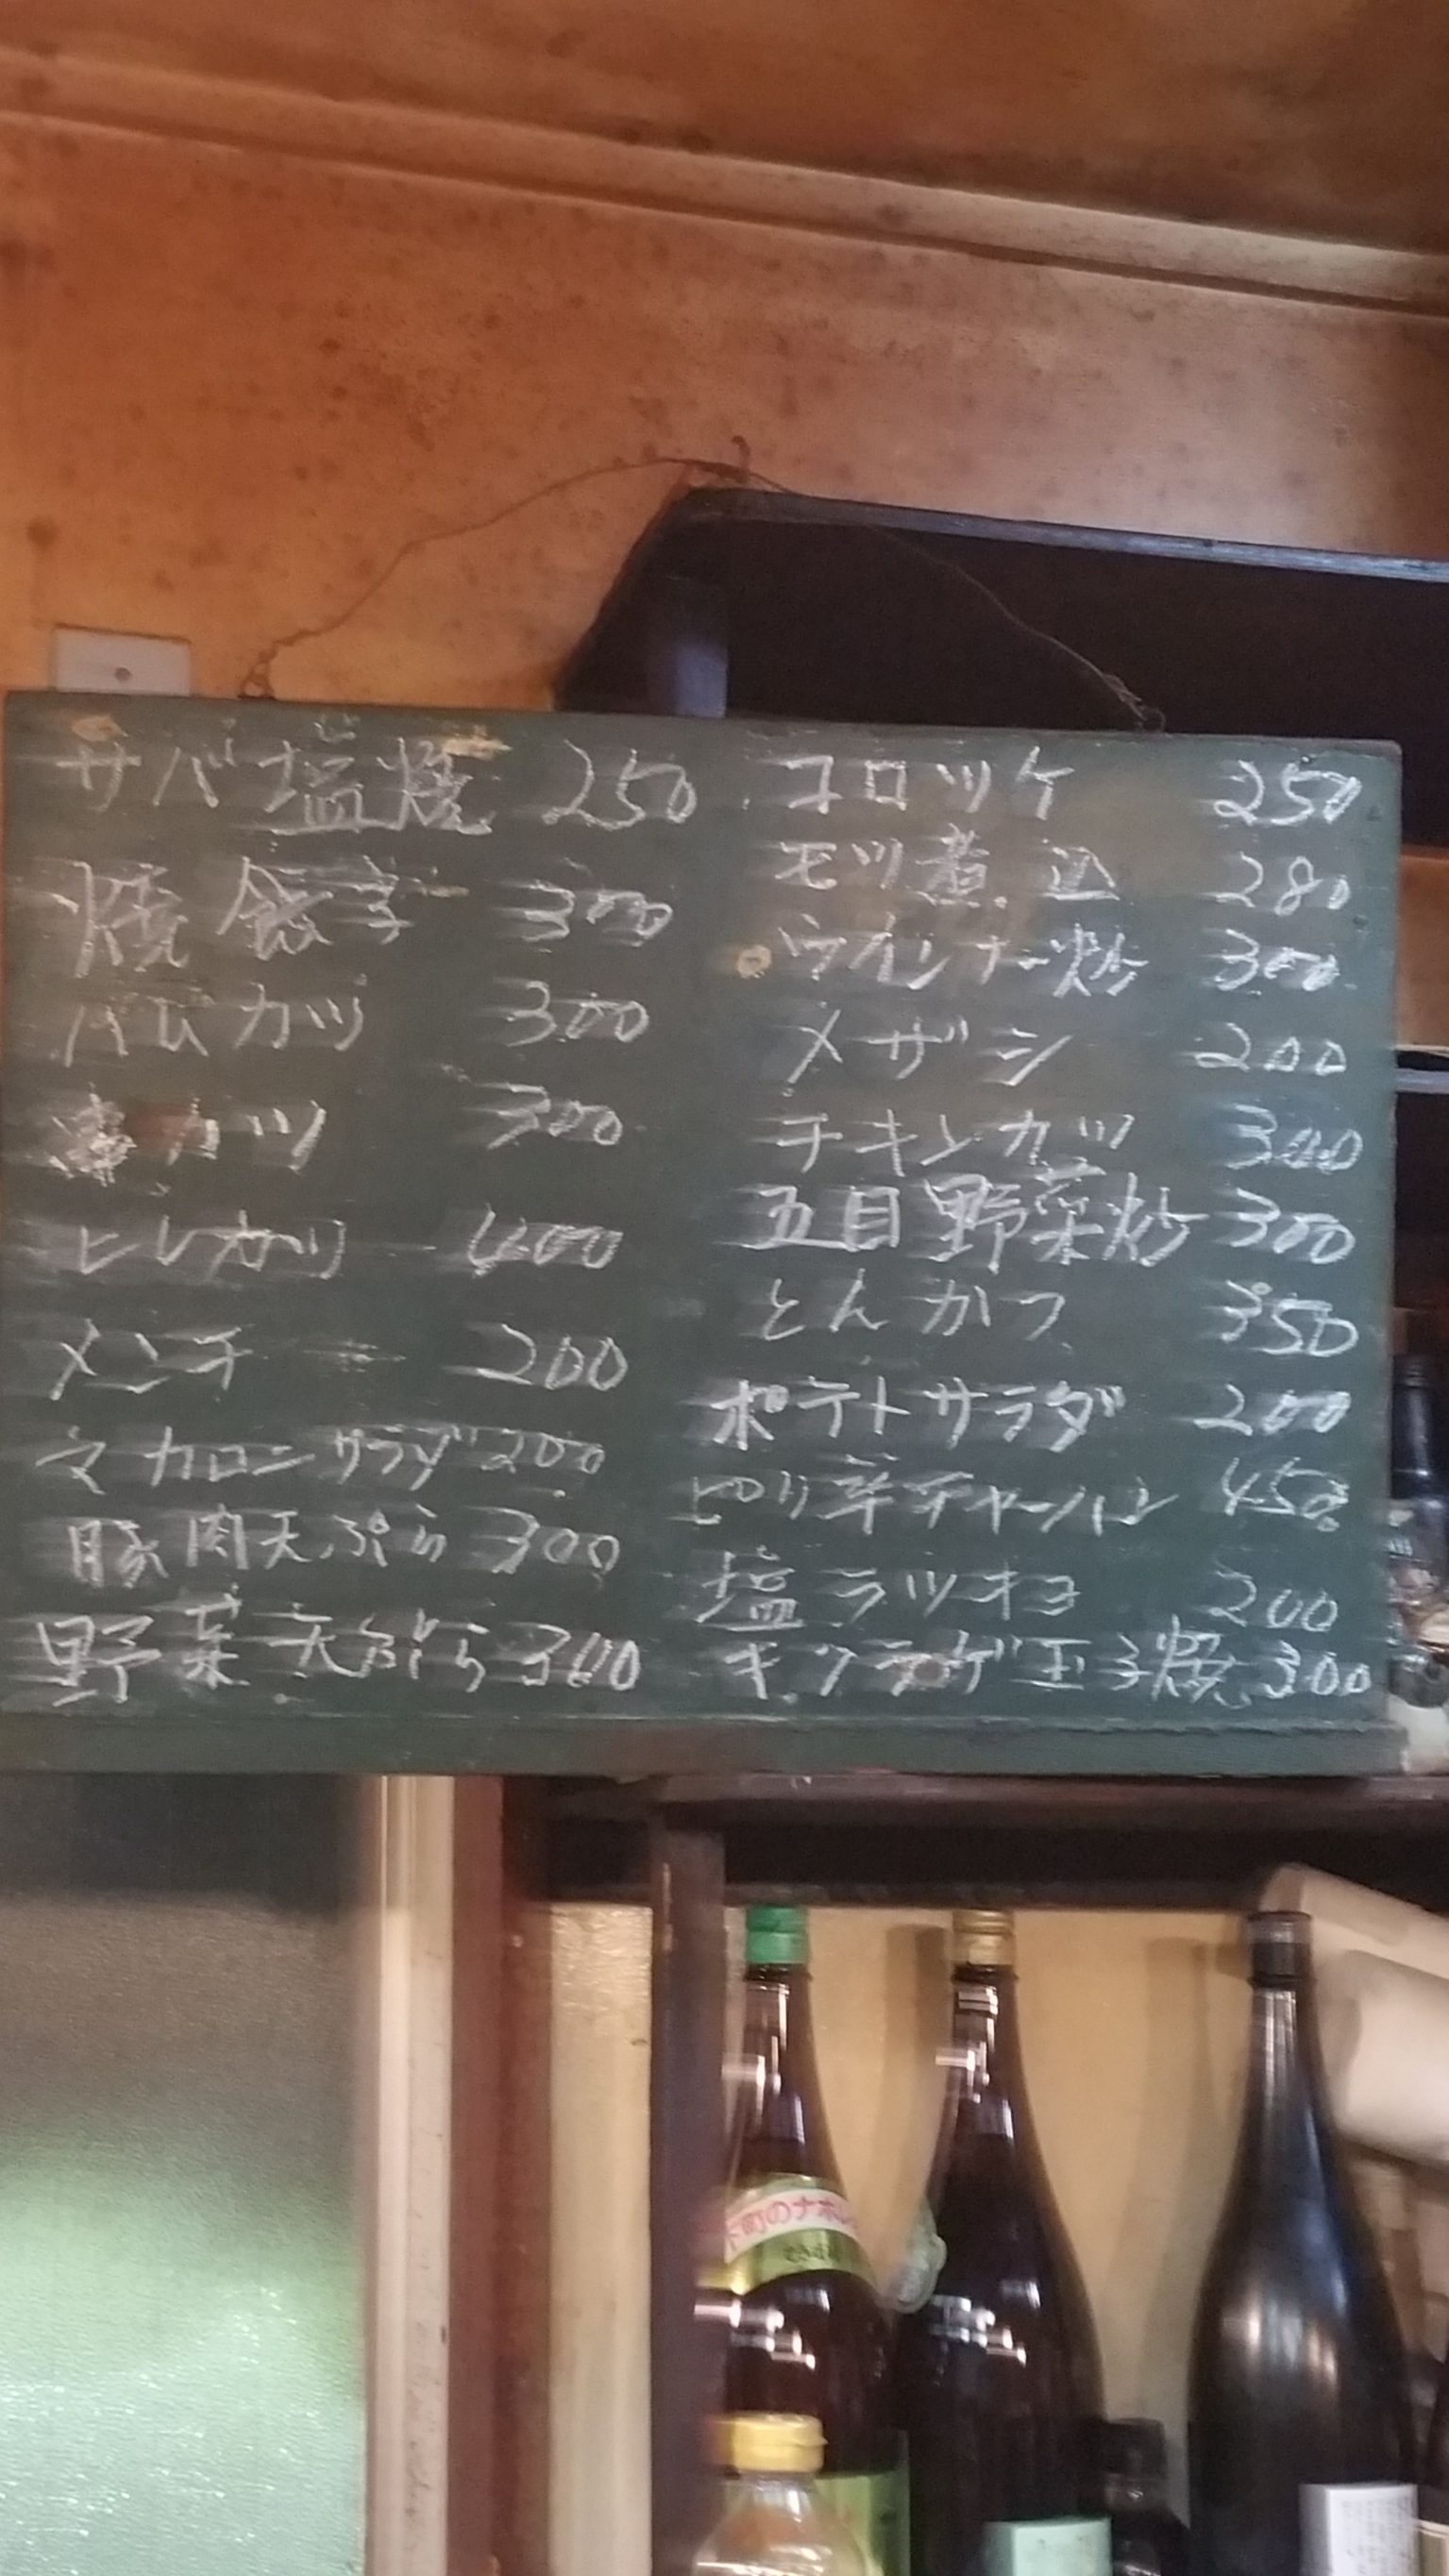 サバ塩焼 250
焼餃子 300
ハムカツ 300
串カツ 300
ヒレカツ 400
メンチ 200
マカロニサラダ 200
豚肉天ぷら 300
野菜天ぷら 300
コロッケ 250
モツ煮込 280
ウインナー炒 300
メザシ 200
チキンカツ 300
五目野菜炒 300
とんかつ 350
ポテトサラダ 200
ピリ辛チャーハン 450
塩ラッキョ 200
キクラゲ玉子焼 300
下町のナポレ